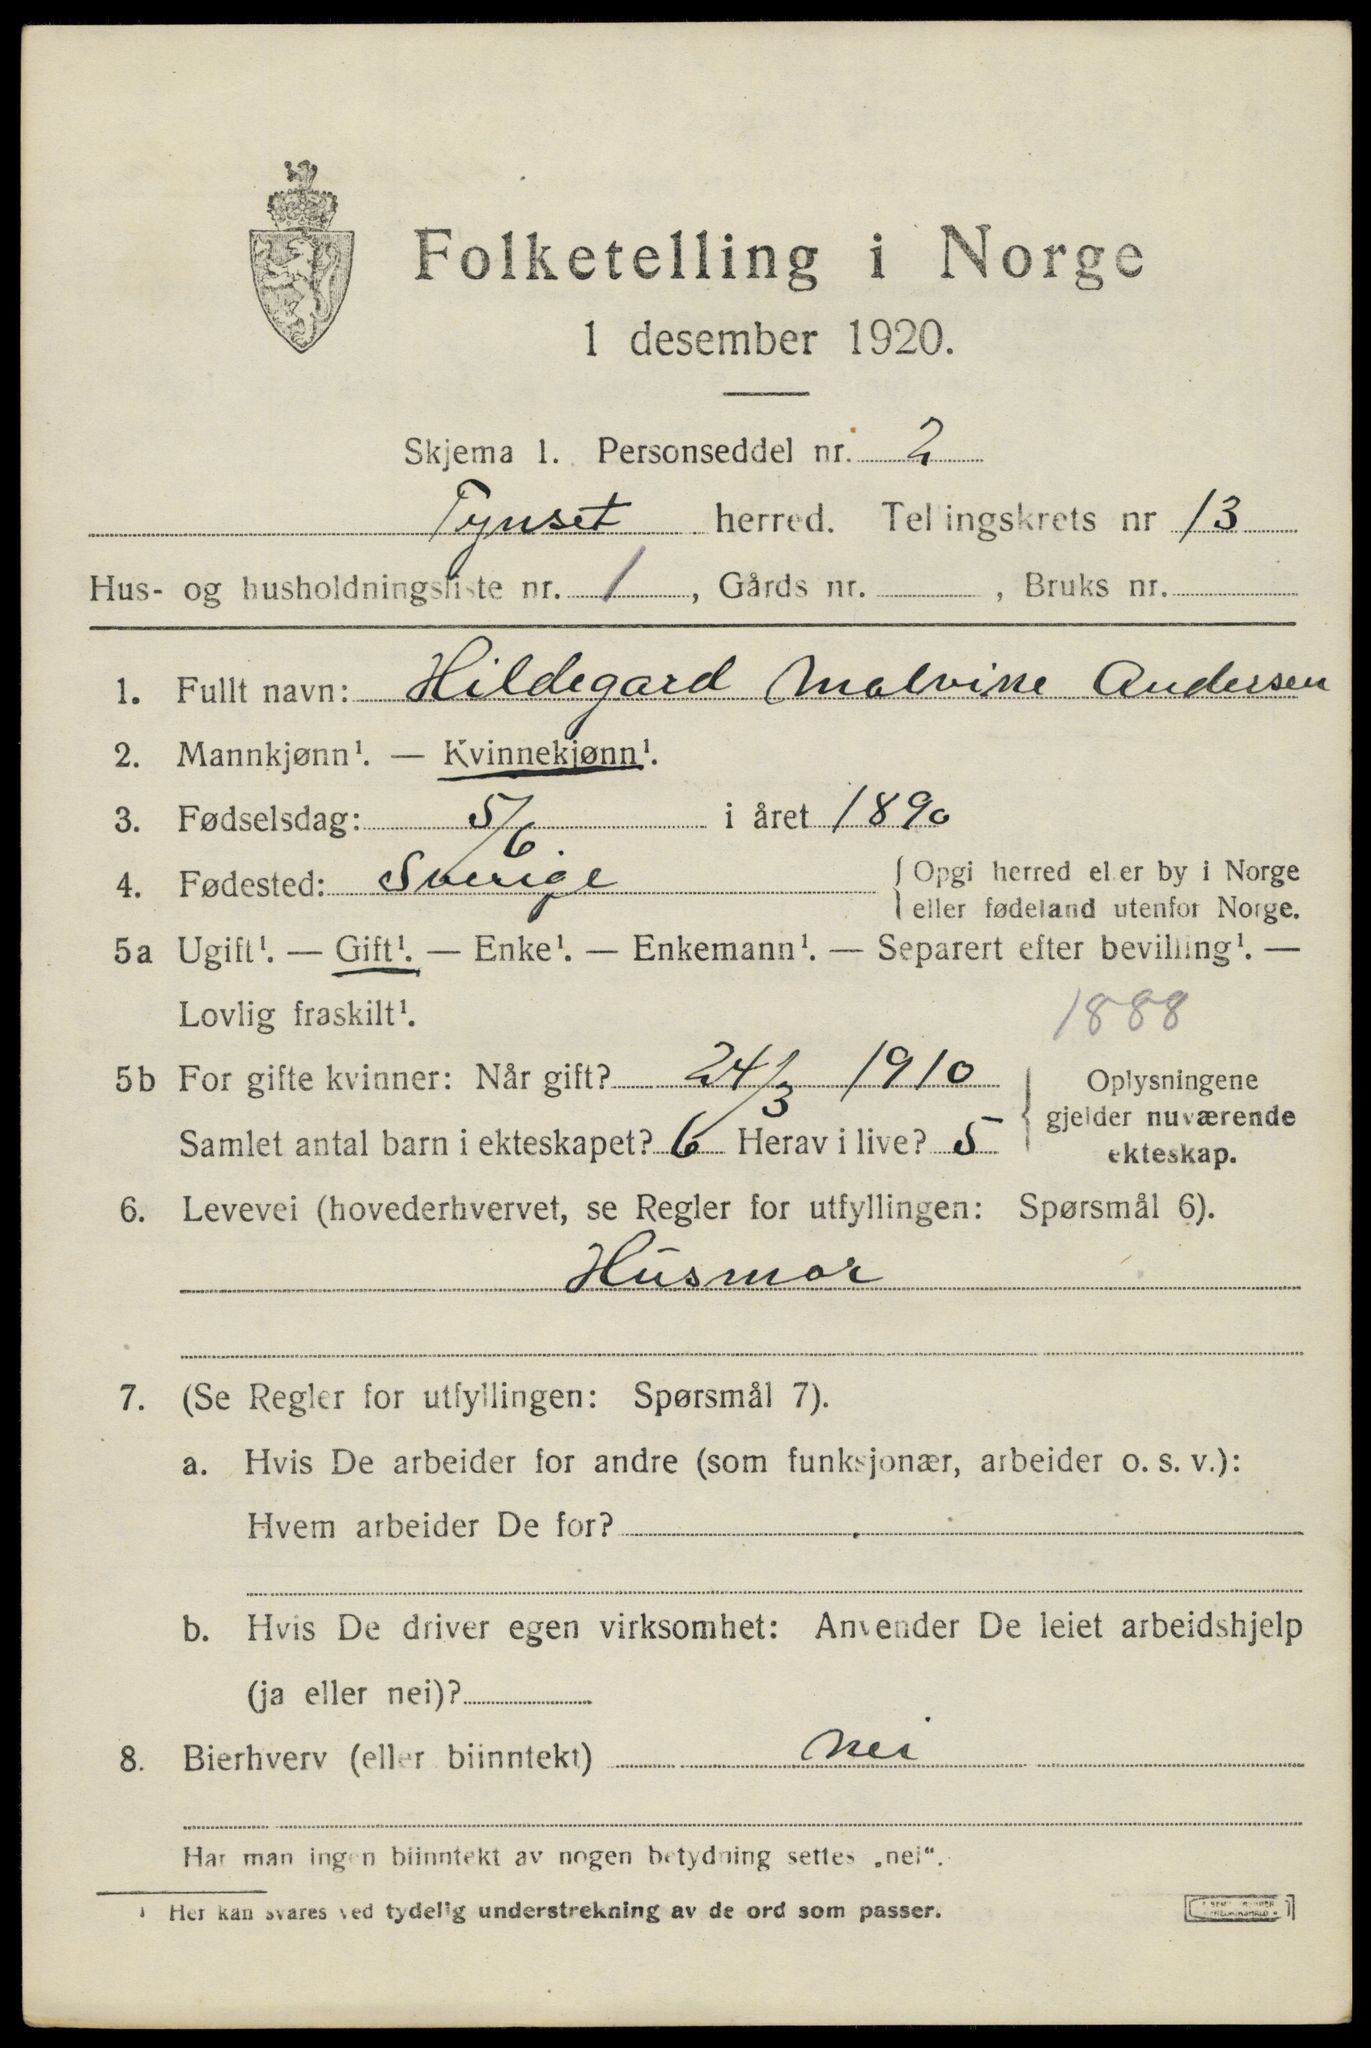 Folketelling i Norge
1 desember 1920.
Skjema 1. Personseddel nr. 2
Tynset herred. Tellingskrets nr 13
Hus- og husholdningsliste nr. 1, Gårds nr. , Bruks nr.
1. Fullt navn: Hildegard Malvine Andersen
2. Mannkjønn¹. — Kvinnekjønn¹.
3. Fødselsdag: 5/6 i året 1890
4. Fødested: Sverige { Opgi herred eller by i Norge
eller fødeland utenfor Norge.
5a Ugift¹. — Gift¹. — Enke¹. — Enkemann¹. — Separert efter bevilling¹. —
Lovlig fraskilt¹. 1888
5b For gifte kvinner: Når gift? 24/3 1910 } Oplysningene
gjelder nuværende
Samlet antal barn i ekteskapet? 6 Herav i live? 5 ekteskap.
6. Levevei (hovederhvervet, se Regler for utfyllingen: Spørsmål 6).
Husmor
7. (Se Regler for utfyllingen: Spørsmål 7).
a. Hvis De arbeider for andre (som funksjonær, arbeider o. s. v.):
Hvem arbeider De for?
b. Hvis De driver egen virksomhet: Anvender De leiet arbeidshjelp
(ja eller nei)?
8. Bierhverv (eller biinntekt) Nei
Har man ingen biinntekt av nogen betydning settes „nei“.
¹ Her kan svares ved tydelig understrekning av de ord som passer.